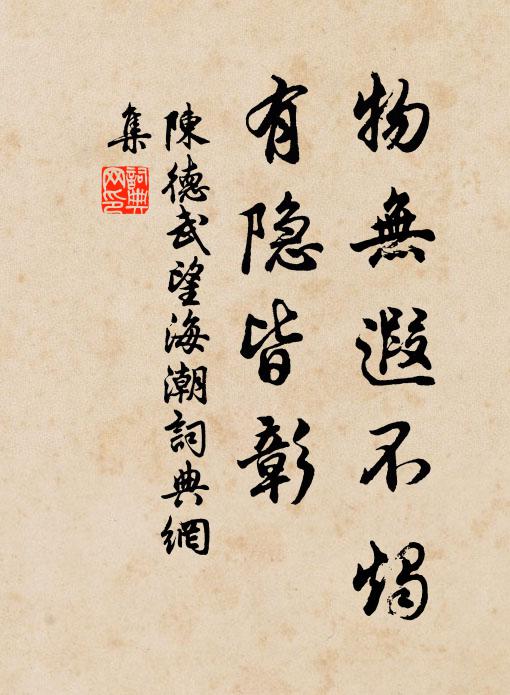 物無遐不燭
有隐皆彰
陳德武望海潮詞典網
集
詞典网印